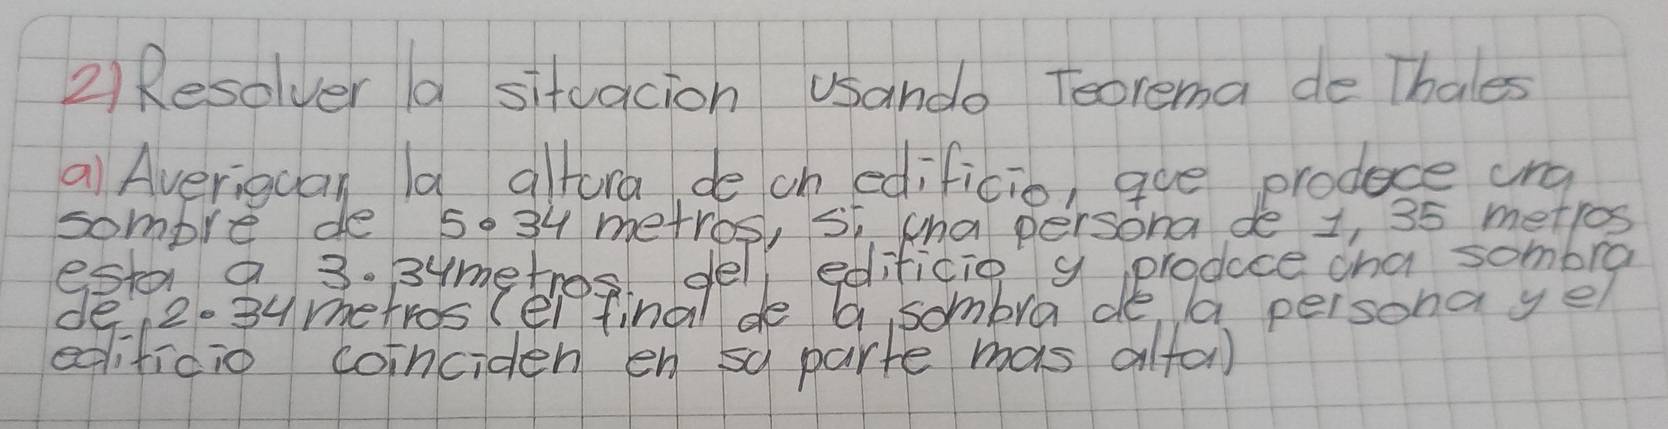 2) Resolver la situacion usando Teorema de Thales
a) Averiguar la altura de un edificio, que produce una
sombre de 5.34 metros, si una persona de 1,35 metros
esta a 3.34 metros del edificio y produce una sombra
de 2.34 metros (el final de la sombra de la persona y el
edificio coinciden en su parte mas alta)